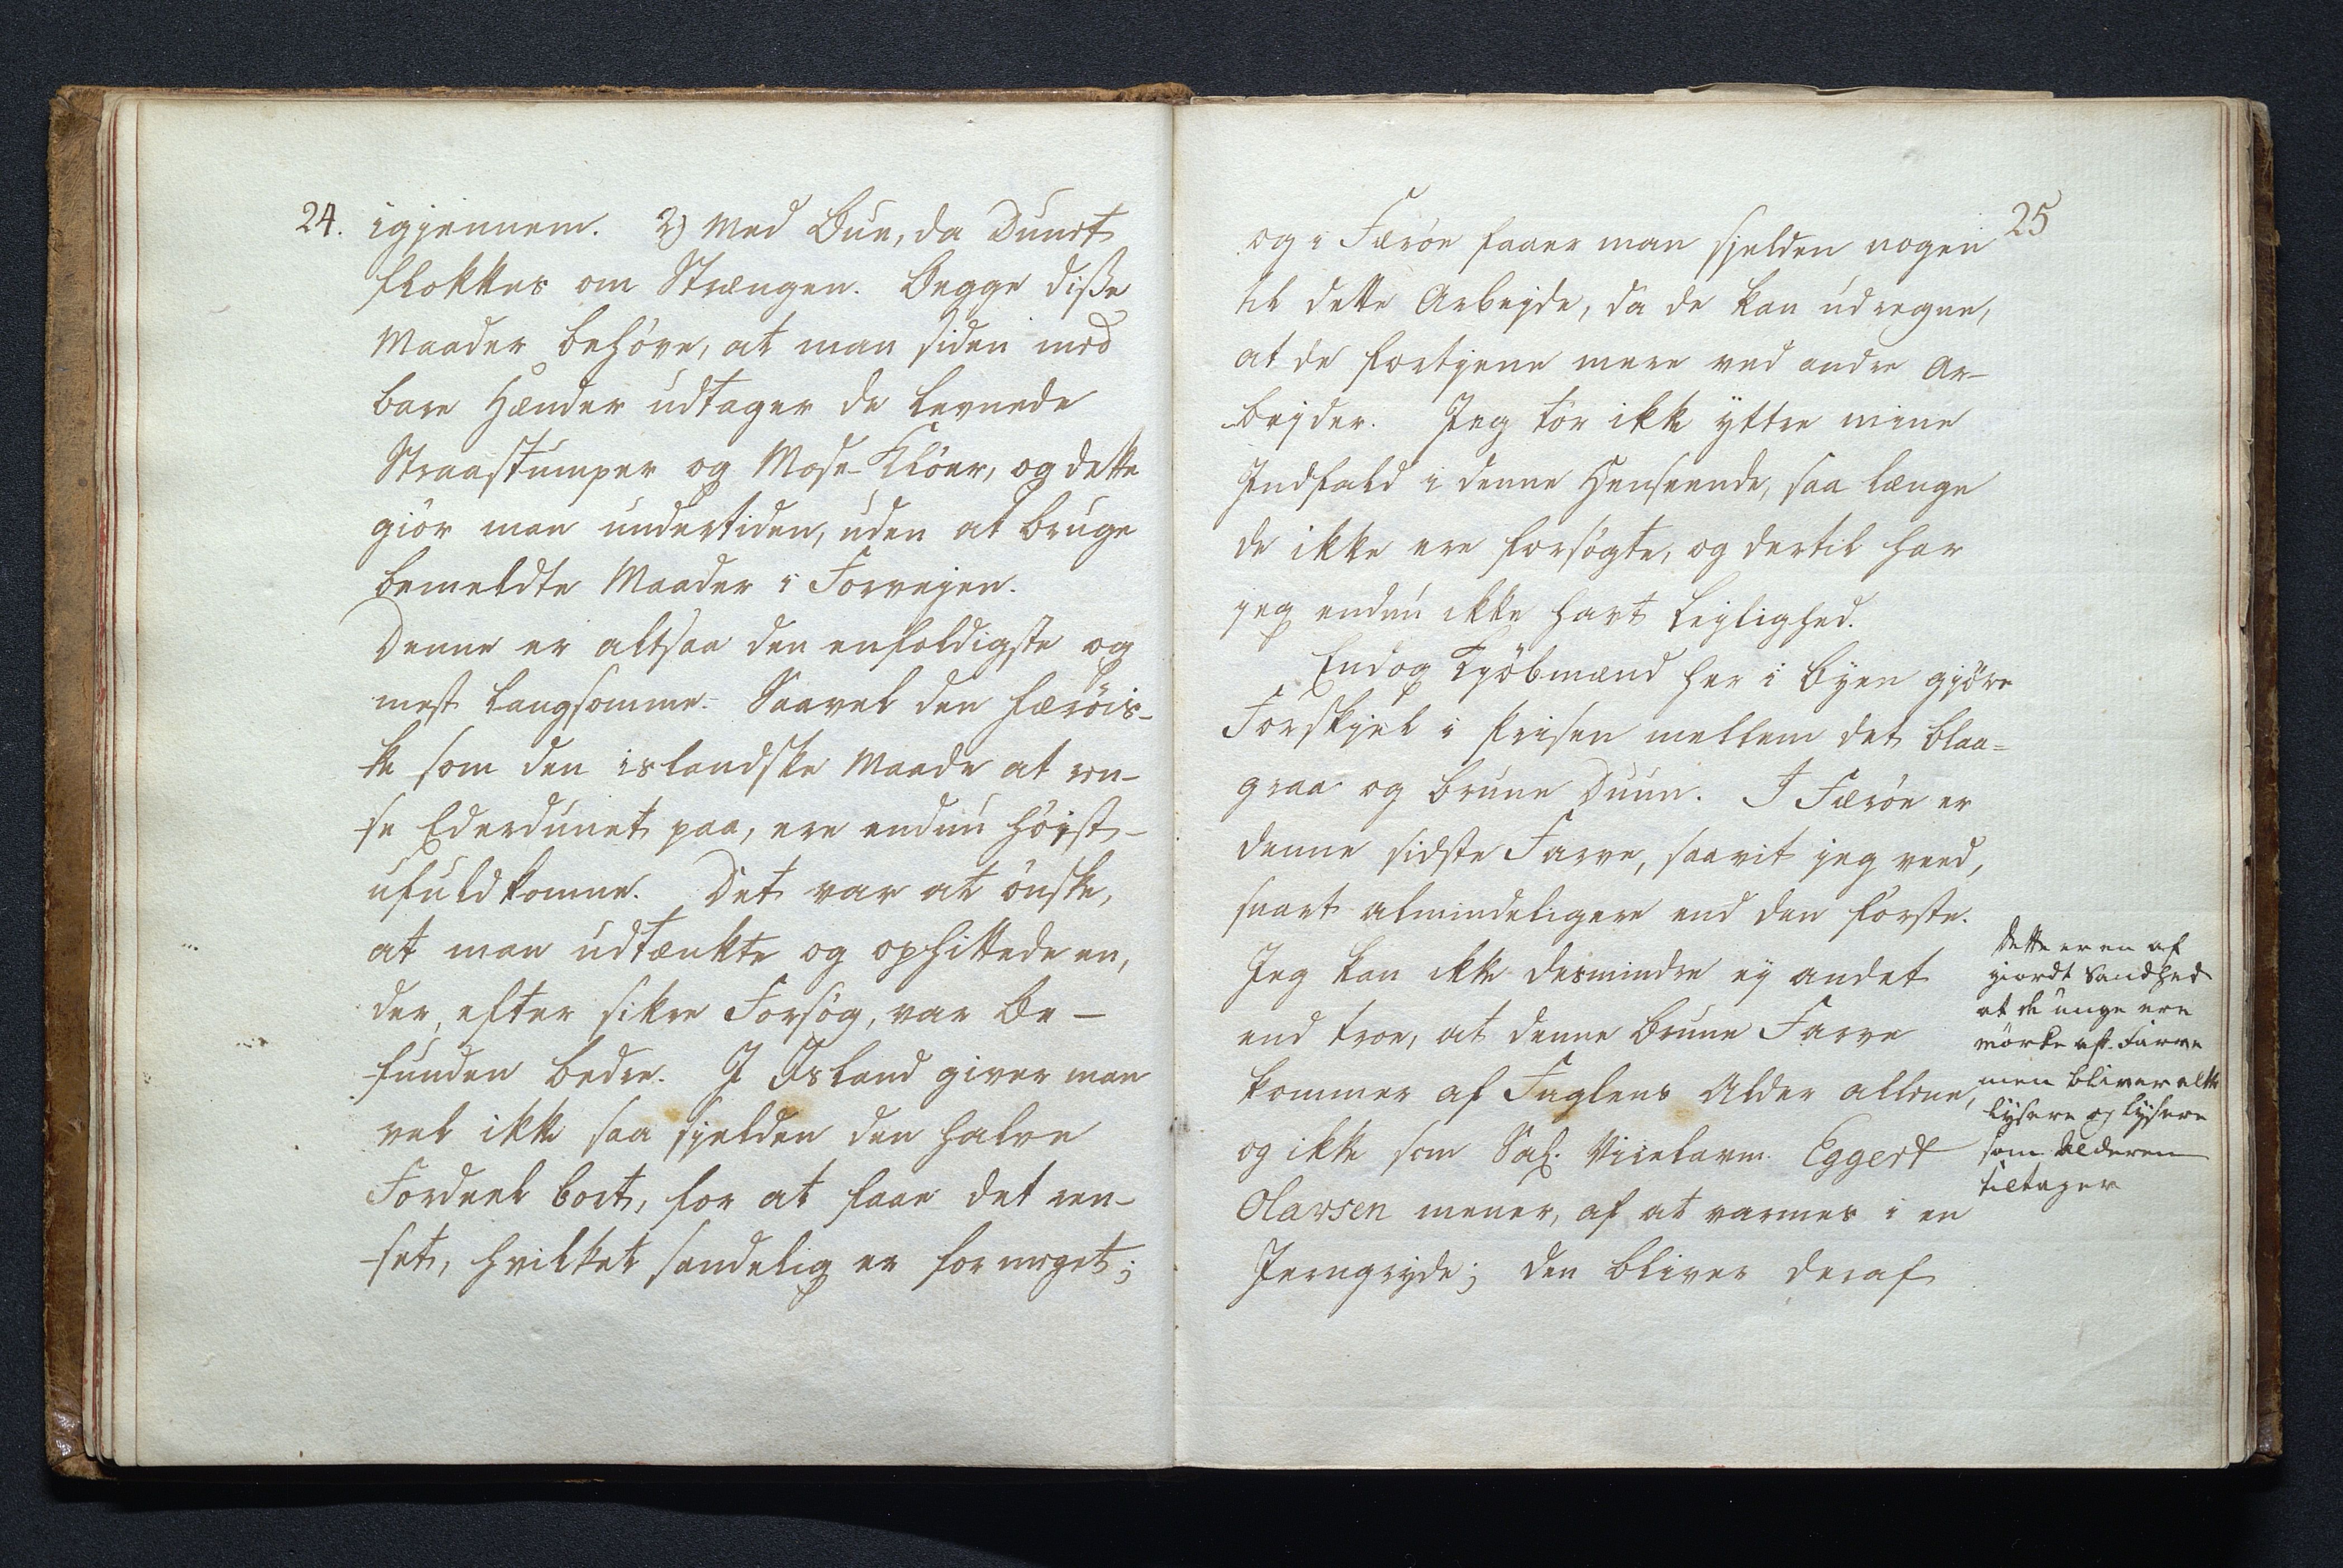 24.
igjennem. 2) med Bue, da Dunet
flokkes om Strængen. Begge disse
Maader behöve, at man siden med
bare Hænder udtager de levnede
Straastumper og Mose-Klöer, og dette
giör man undertiden, uden at bruge
bemeldte Maader i Forvejen.
Denne er altsaa den enfoldigste og
mest langsomme. Saavel den færöis-
ke som den islandske Maade at ren-
se Ederdunet paa, ere endnu höist-
ufuldkomne. Det var at önske,
at man udtænkte og ophittede en,
der, efter sikre Forsög, var be-
funden bedre. I Island giver man
vel ikke saa sjelden den halve
Fordeel bort, for at faae det ren-
set, hvilket sandelig er for meget;
25
og i Færöe faaer man sjelden nogen
til dette Arbejde, da de kan udregne,
at de fortjene mere ved andre Ar-
bejder. Jeg tör ikke yttre mine
Indfald i denne Henseende, saa længe
de ikke ere forsögte, og dertil har
jeg endnu ikke havt Lejlighed.
Endog Kjöbmænd her i Byen gjöre
Forskjel i Prisen mellem det blaa-
graa og brune Duun. I Færöe er
denne sidste Farve, saavit jeg veed,
snart almindeligere end den förste.
Jeg kan ikke desmindre ej andet
end troe, at denne brune Farve
kommer af Fuglens Alder allene,
og ikke som Sal. Vicelavm. Eggert
Olavsen mener, af at varmes i en
Jerngryde; den bliver deraf
Dette er en af
giordt Sandhed
at de unge ere
mörke af Farve
men bliver alt
lysere og lysere
som Alderen
tiltager